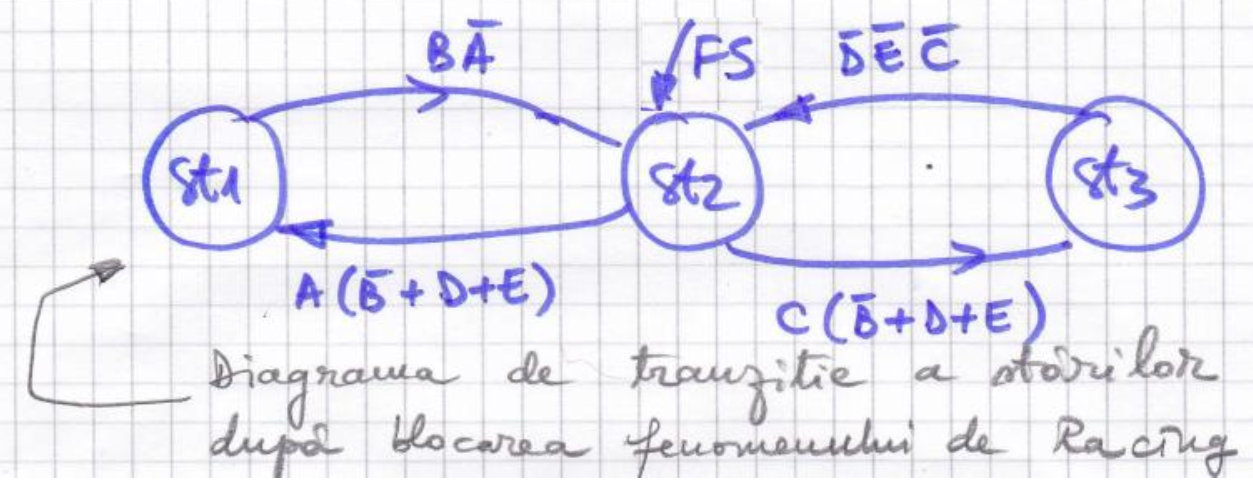 BĀ
FS
D̄ĒC̄
st1
st2
st3
A(B̄+D+E)
C(B̄+D+E)
Diagrama de tranziție a stărilor
după blocarea fenomenului de Racing